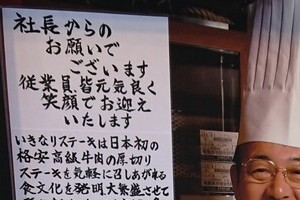 社長からの
お願いで
ございます
従業員、皆元気良く
笑顔でお迎え
いたします
いきなりステーキは日本初の
格安高級牛肉の厚切り
ステーキを気軽に召しあがれる
食文化を発明大繁盛させて